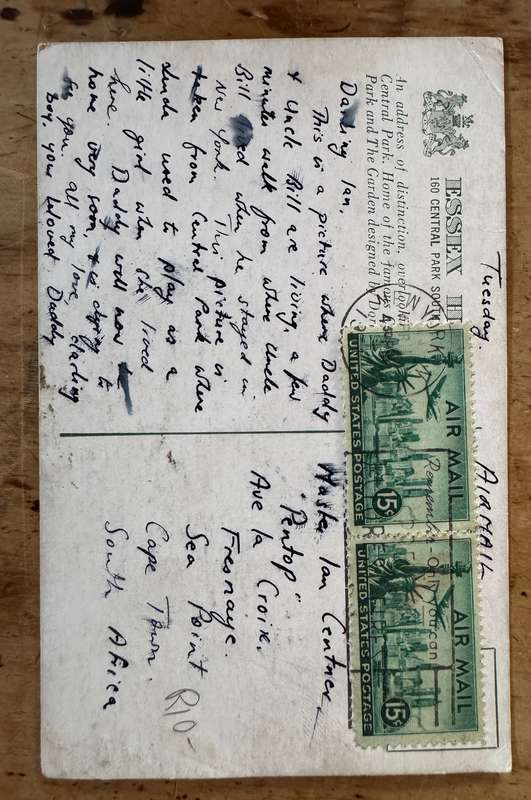 Tuesday.
AIRMAIL
ESSEX H
160 CENTRAL PARK SOUTH
An address of distinction, overlooki
Central Park. Home of the famous
Park and The Garden designed by Dor
Darling Ian,
This is a picture where Daddy
& Uncle Bill are living, a few
minutes walk from where Uncle
Bill lived when he stayed in
New York. This picture is
taken from Central Park where
Linda used to play as a
little girl when she lived
here. Daddy will now be
home very soon dying to
for you. all my love, Darling
boy, your beloved Daddy
AIR MAIL
UNITED STATES POSTAGE
15¢
AIR MAIL
UNITED STATES POSTAGE
15¢
Master Ian Centner,
"Pentop"
Ave la Croix,
Fresnaye.
Sea Point
Cape Town.
South Africa
R10-